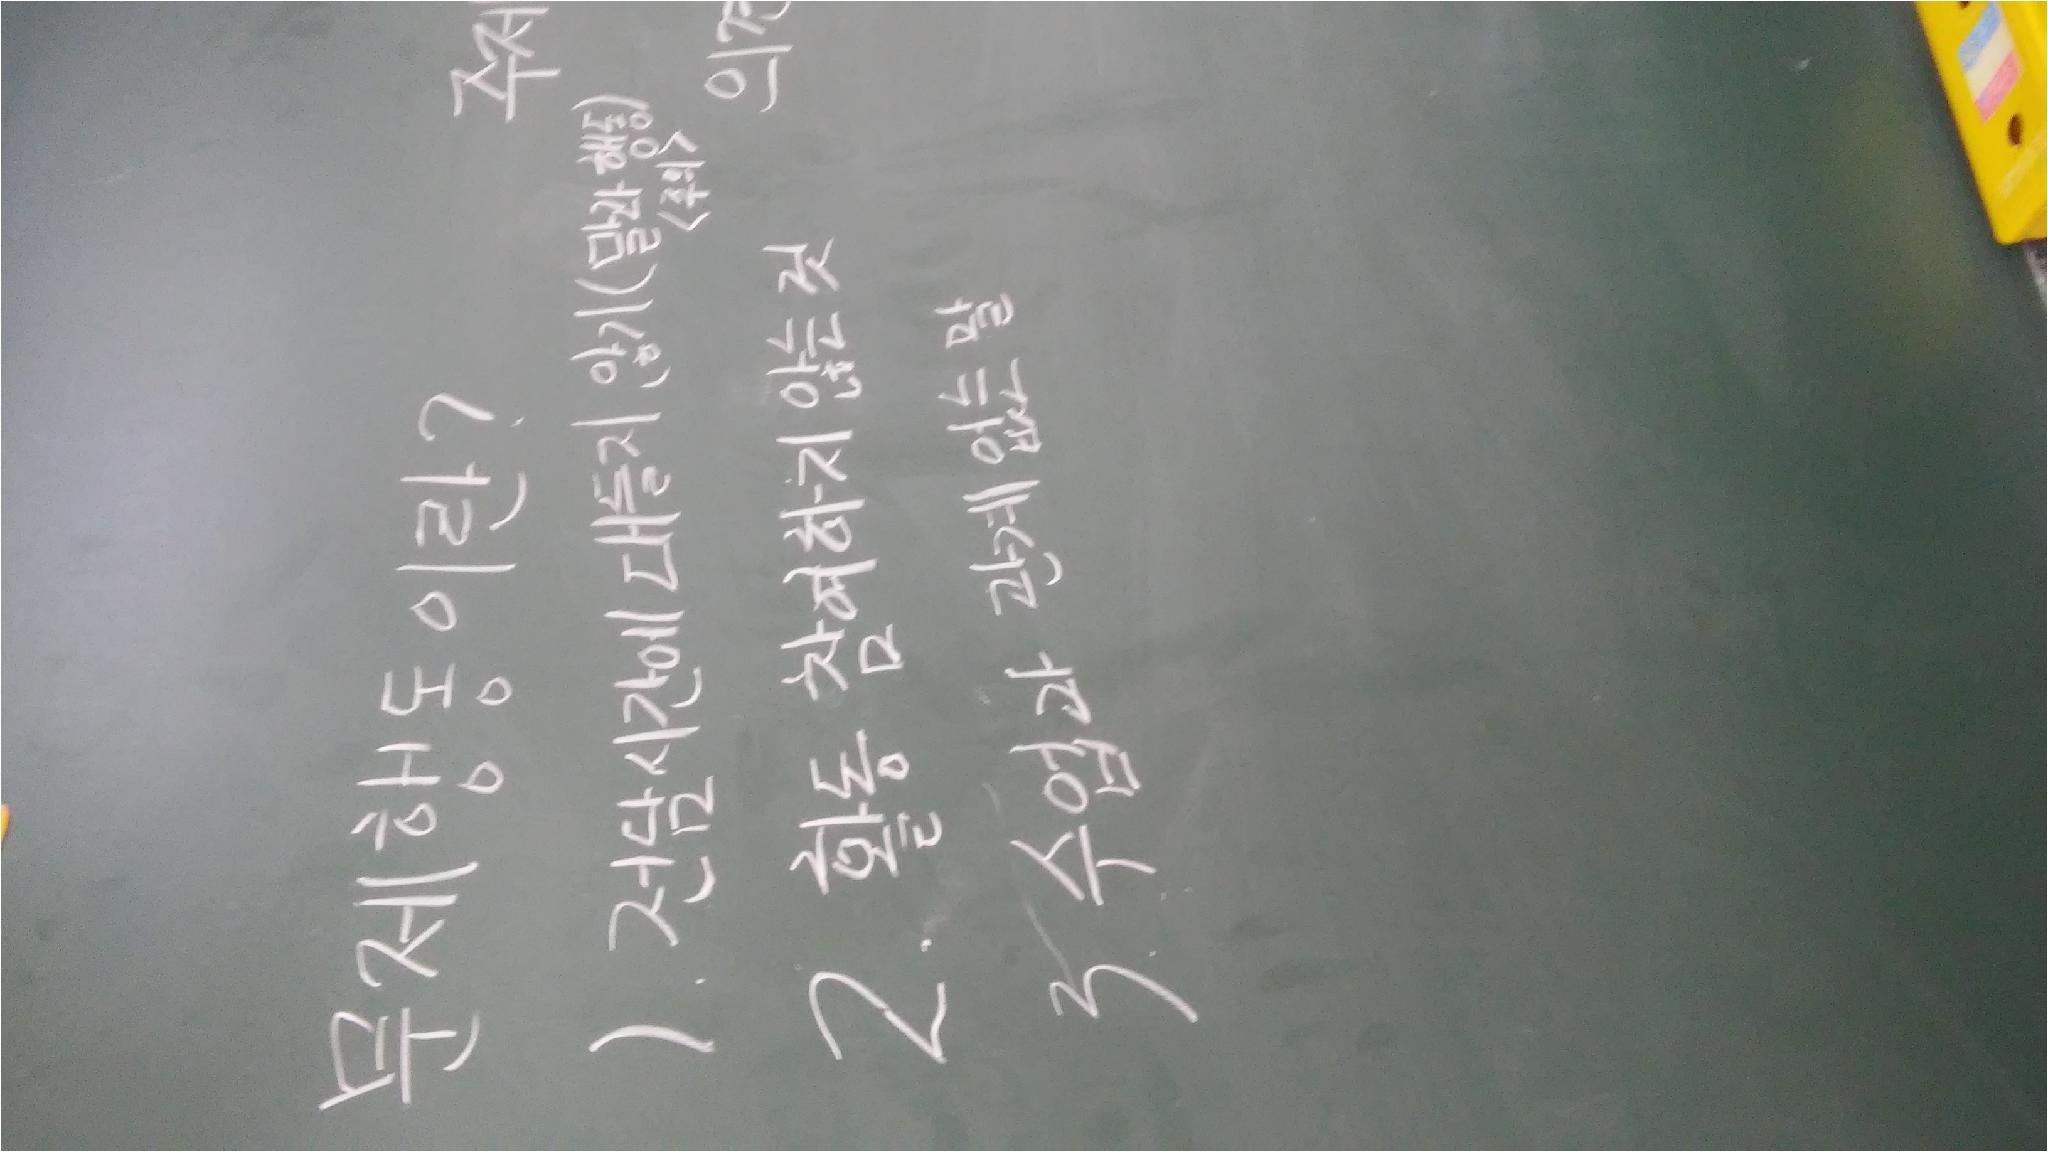 문제행동이란?
1. 전담시간에 대들지 않기(말과 행동)
<주의>
2. 활동 참여하지 않는 것
3. 수업과 관계 없는 말
주제